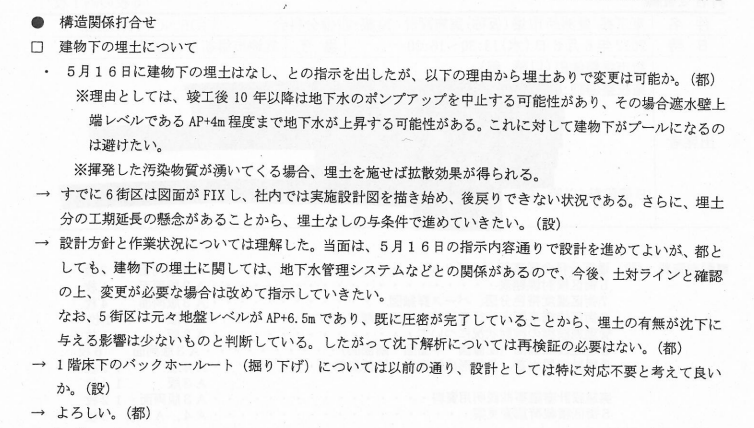 ● 構造関係打合せ
□ 建物下の埋土について
・ 5月16日に建物下の埋土はなし、との指示を出したが、以下の理由から埋土ありで変更は可能か。(都)
※理由としては、竣工後10年以降は地下水のポンプアップを中止する可能性があり、その場合遮水壁上
端レベルであるAP+4m程度まで地下水が上昇する可能性がある。これに対して建物下がプールになるの
は避けたい。
※揮発した汚染物質が湧いてくる場合、埋土を施せば拡散効果が得られる。
→ すでに6街区は図面がFIXし、社内では実施設計図を描き始め、後戻りできない状況である。さらに、埋土
分の工期延長の懸念があることから、埋土なしの与条件で進めていきたい。(設)
→ 設計方針と作業状況については理解した。当面は、5月16日の指示内容通りで設計を進めてよいが、都と
しても、建物下の埋土に関しては、地下水管理システムなどとの関係があるので、今後、土対ラインと確認
の上、変更が必要な場合は改めて指示していきたい。
なお、5街区は元々地盤レベルがAP+6.5mであり、既に圧密が完了していることから、埋土の有無が沈下に
与える影響は少ないものと判断している。したがって沈下解析については再検証の必要はない。(都)
→ 1階床下のバックホールート（掘り下げ）については以前の通り、設計としては特に対応不要と考えて良い
か。(設)
→ よろしい。(都)